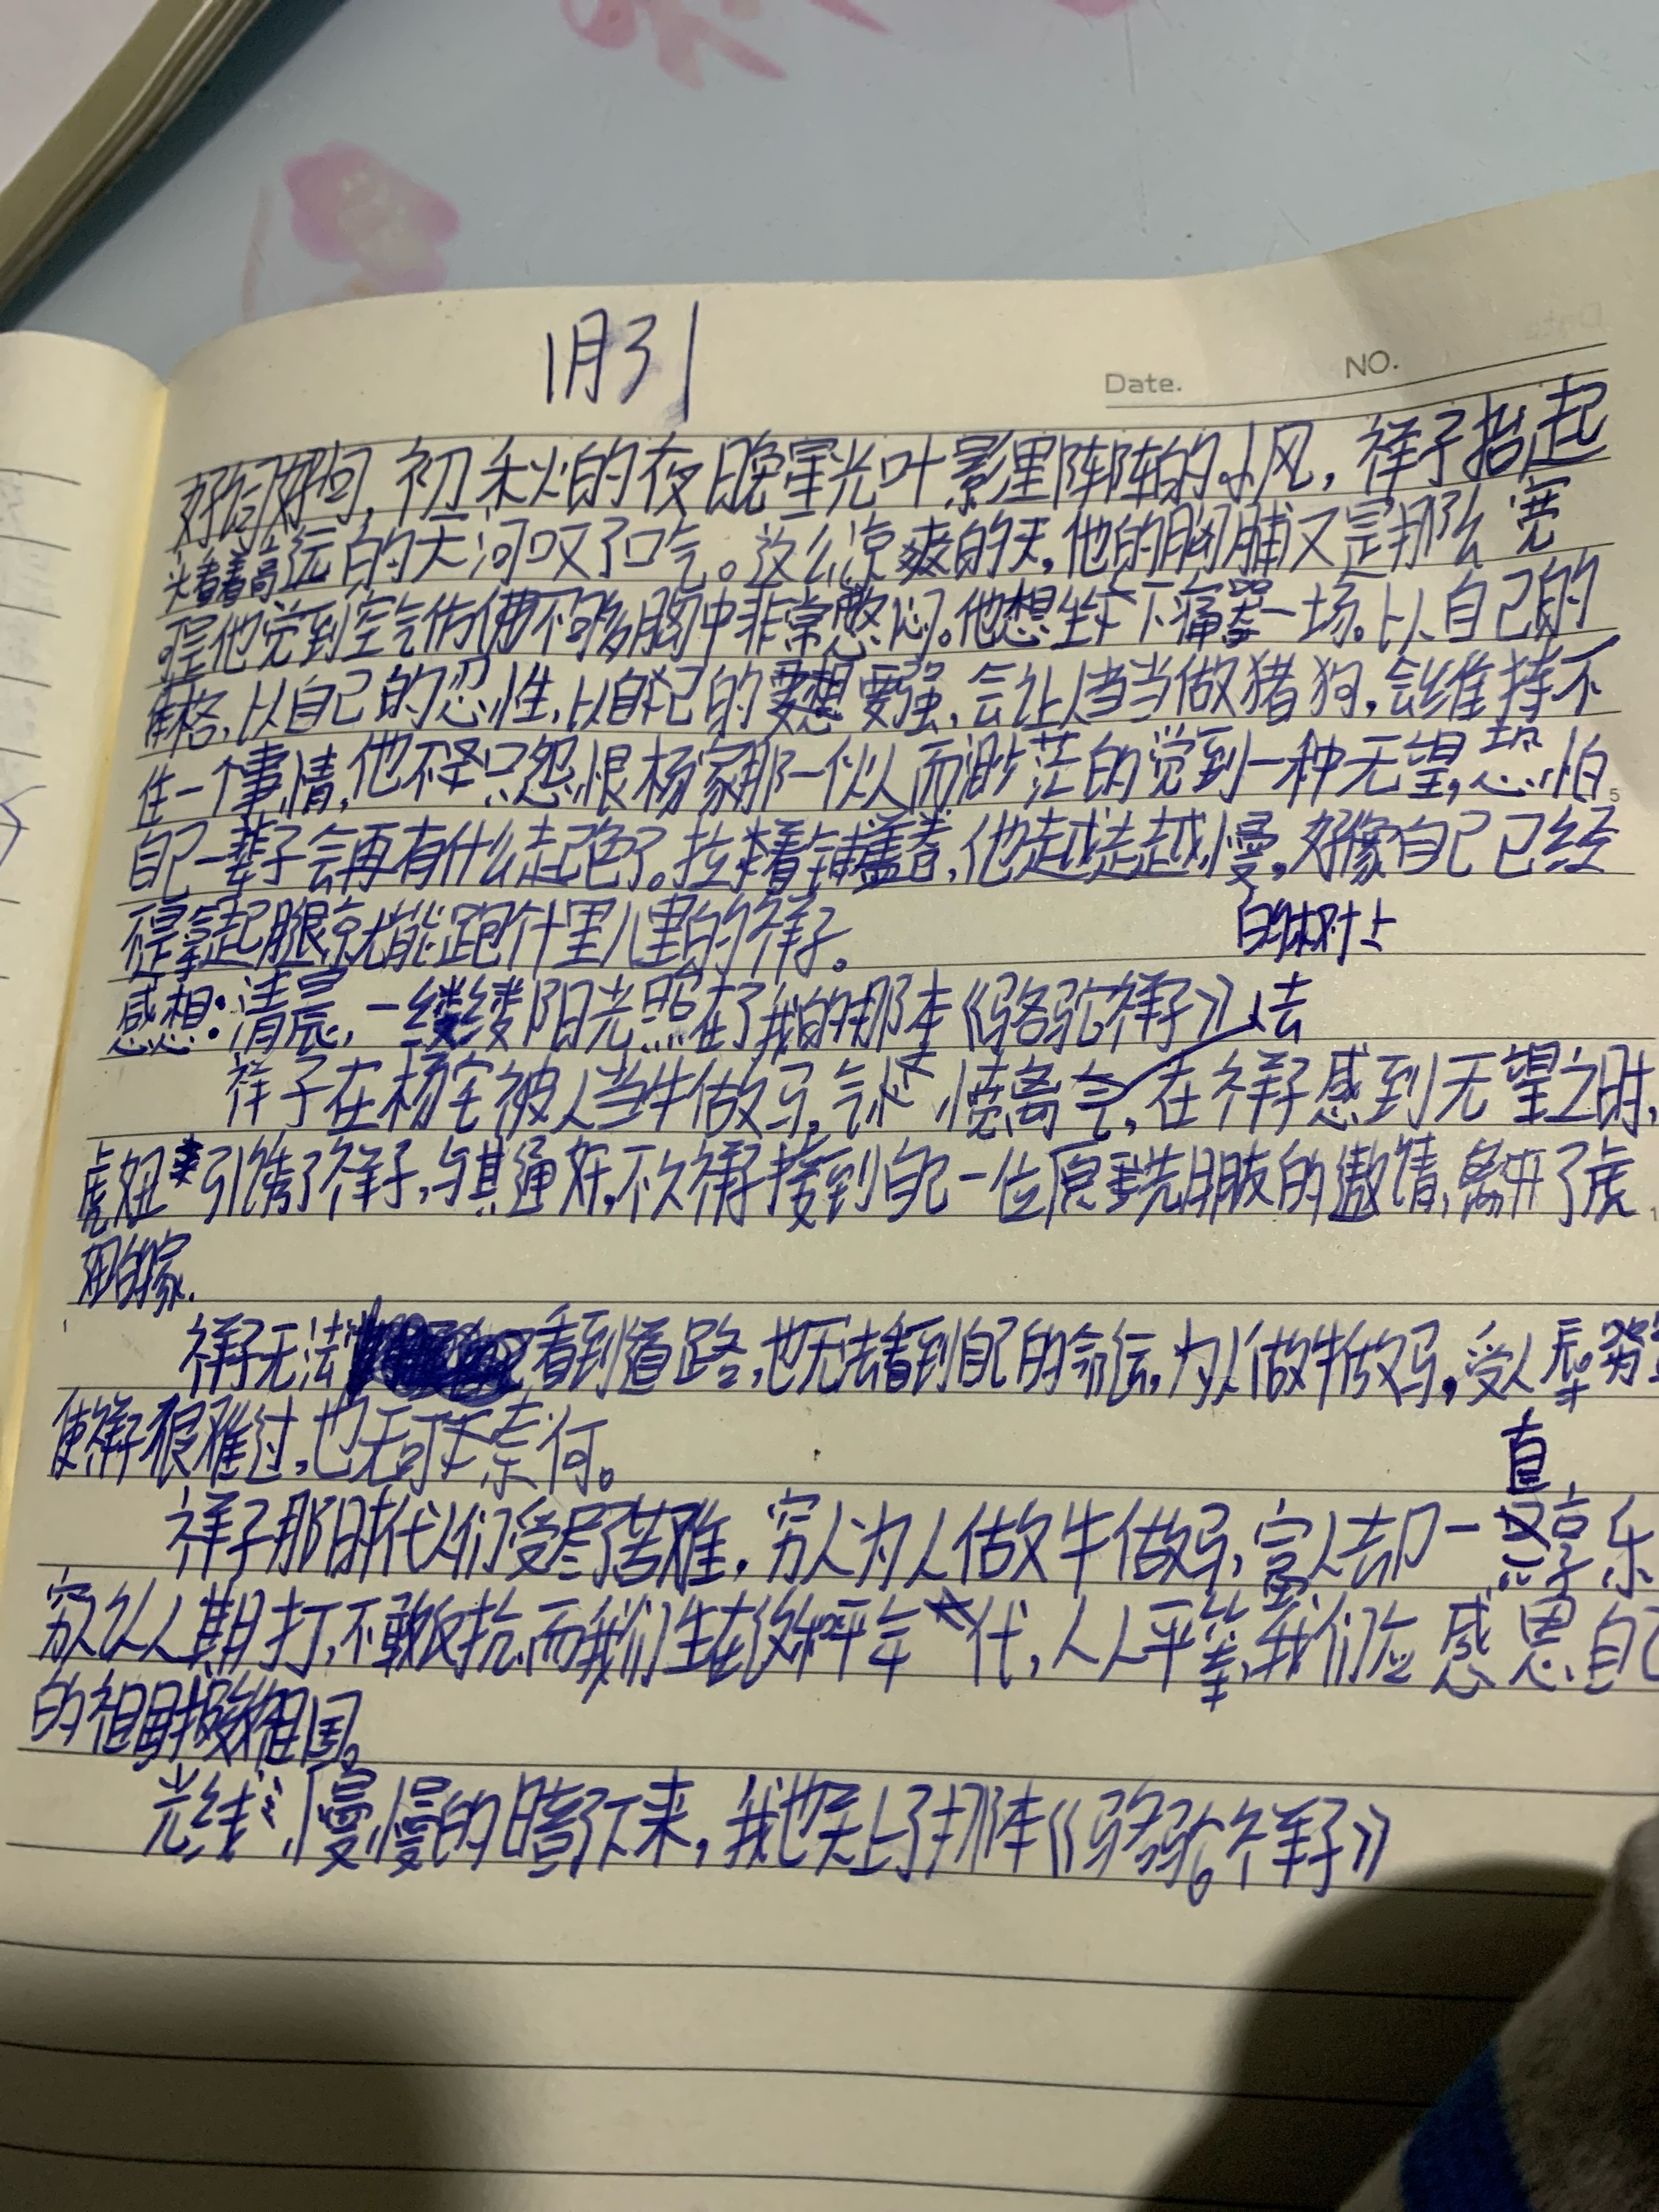 1月31
Date.
NO.
好词好句，初秋的夜晚星光叶影里阵阵的小风，祥子抬起
头看着高远的天河叹了口气。这么凉爽的天，他的胸脯又是那么宽
可是他觉到空气仿佛不够胸中非常憋闷。他想坐下痛哭一场。以自己的
体格，以自己的忍性，以自己的要强，会让人当做猪狗，会维持不
住一个事情，他不只怨恨杨家那一伙人而渺茫的觉到一种无望，恐怕
5
自己一辈子会再有什么起色了。拉着铺盖卷，他越走越慢，好像自己已经
不是拿起腿就能跑个十里八里的祥子。
的树上
感想：清晨，一缕缕阳光照在了我的那本《骆驼祥子》去
祥子在杨宅被人当牛做马，气愤离去，在祥子感到无望之时，
虎妞引诱了祥子，与其通奸，不久祥子接到自己一位原先朋友的邀请，离开了虎
妞的家.
祥子无法看到道路，也无法看到自己的命运，为人做牛做马，受人
使祥子很难过，也无可奈何。
直
祥子那时代人们受尽了苦难，穷人为人做牛做马，富人却一享乐
穷人以人期打，不敢反抗，而我们生在这和平年代，人人平等，我们应感恩自己
的祖国
光线慢慢的暗了下来，我也关上了那本《骆驼祥子》